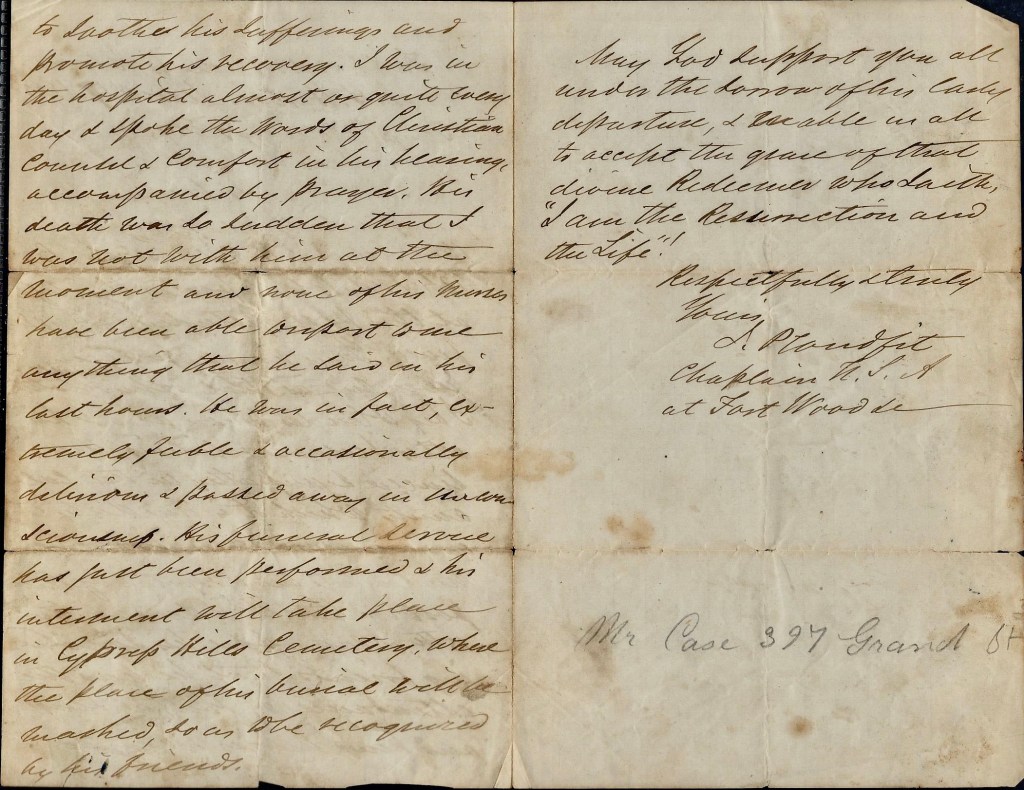 to soothe his sufferings and
promote his recovery. I was in
the hospital almost or quite every
day & spoke the words of Christian
counsel & comfort in his hearing,
accompanied by prayer. His
death was so sudden that I
was not with him at the
moment and none of his nurses
have been able to report to me
anything that he said in his
last hours. He was in fact, ex-
tremely feeble & occasionally
delirious & passed away in uncon
sciousness. His funeral service
has just been performed & his
interment will take place
in Cypress Hills Cemetery, where
the place of his burial will be
marked, so as to be recognized
by his friends.
May God support you all
under the sorrow of his early
departure, & enable us all
to accept the grace of that
divine Redeemer who saith,
"I am the Resurrection and
the Life"!
Respectfully & truly
Yours
Chaplain U. S. A
at Fort Wood
Mr Case 397 Grand St